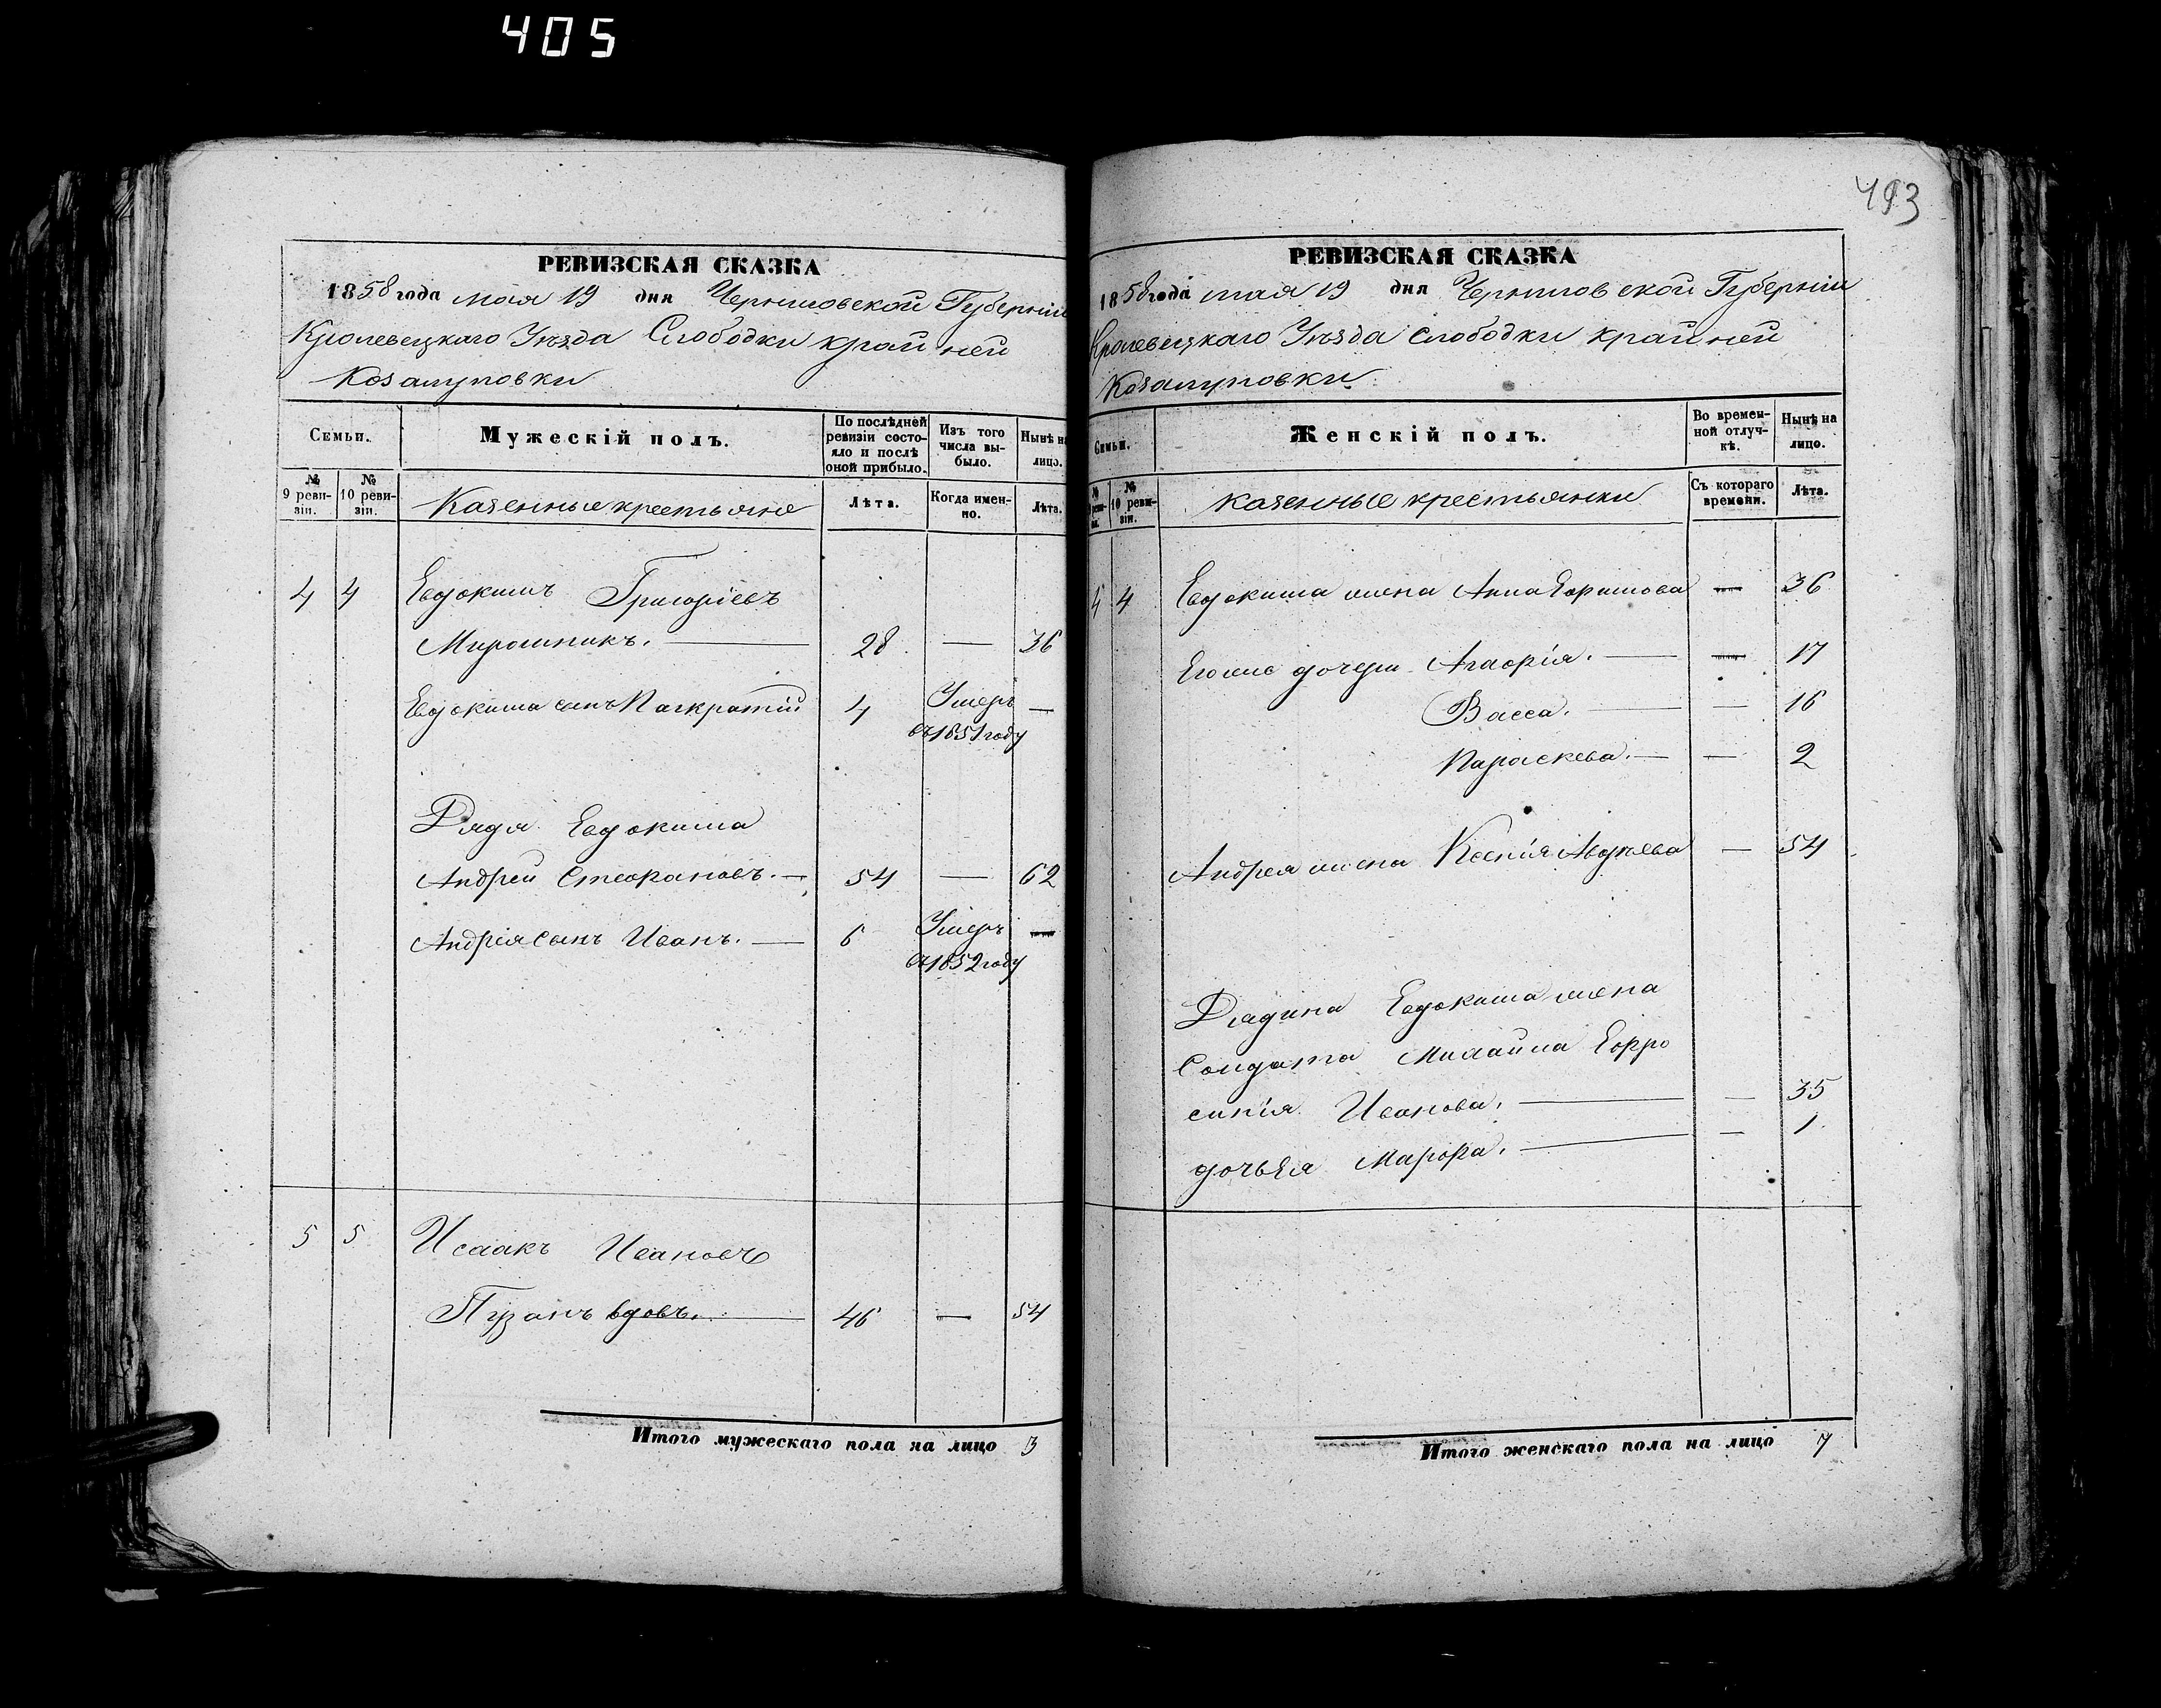 405
493
РЕВИЗСКАЯ СКАЗКА
1858 года мая 19 дня Черниговской Губерніи
Кролевецкаго Уѣзда Слободки крайней
Козалуповки
Семьи.
Мужескій полъ.
По послѣдней ревизіи состояло и послѣ оной прибыло.
Изъ того числа выбыло.
Нынѣ на лицо.
№ 9 ревизіи.
№ 10 ревизіи.
Казенные крестьяне
Лѣта.
Когда именно.
Лѣта.
4 4 Евдокимъ Григоріевъ
Мирошникъ. — 28 — 36
Евдокима сынъ Панкратій 4 Умеръ —
въ 1851 году
Дядя Евдокима
Андрей Стефановъ. — 54 — 62
Андрея сынъ Иванъ. — 6 Умеръ —
въ 1852 году
5 5 Исаакъ Ивановъ
Пузанъ вдовъ. — 46 — 54
Итого мужескаго пола на лицо 3
РЕВИЗСКАЯ СКАЗКА
1858 года мая 19 дня Черниговской Губерніи
Кролевецкаго Уѣзда Слободки крайней
Козалуповки.
Семьи.
Женскій полъ.
Во временной отлучкѣ.
Нынѣ на лицо.
№ 9 ревизіи.
№ 10 ревизіи.
казенные крестьянки
Съ котораго времени.
Лѣта.
4 4 Евдокима жена Анна Ефимова — 36
Его же дочери Агафія. — — 17
Васса. — — 16
Параскева. — — 2
Андрея жена Ксенія Авдѣева — 54
Дядина Евдокима жена
Солдата Михайла Ефро
синія Иванова. — — 35
дочь Ея Марфа. — — 1
Итого женскаго пола на лицо 7